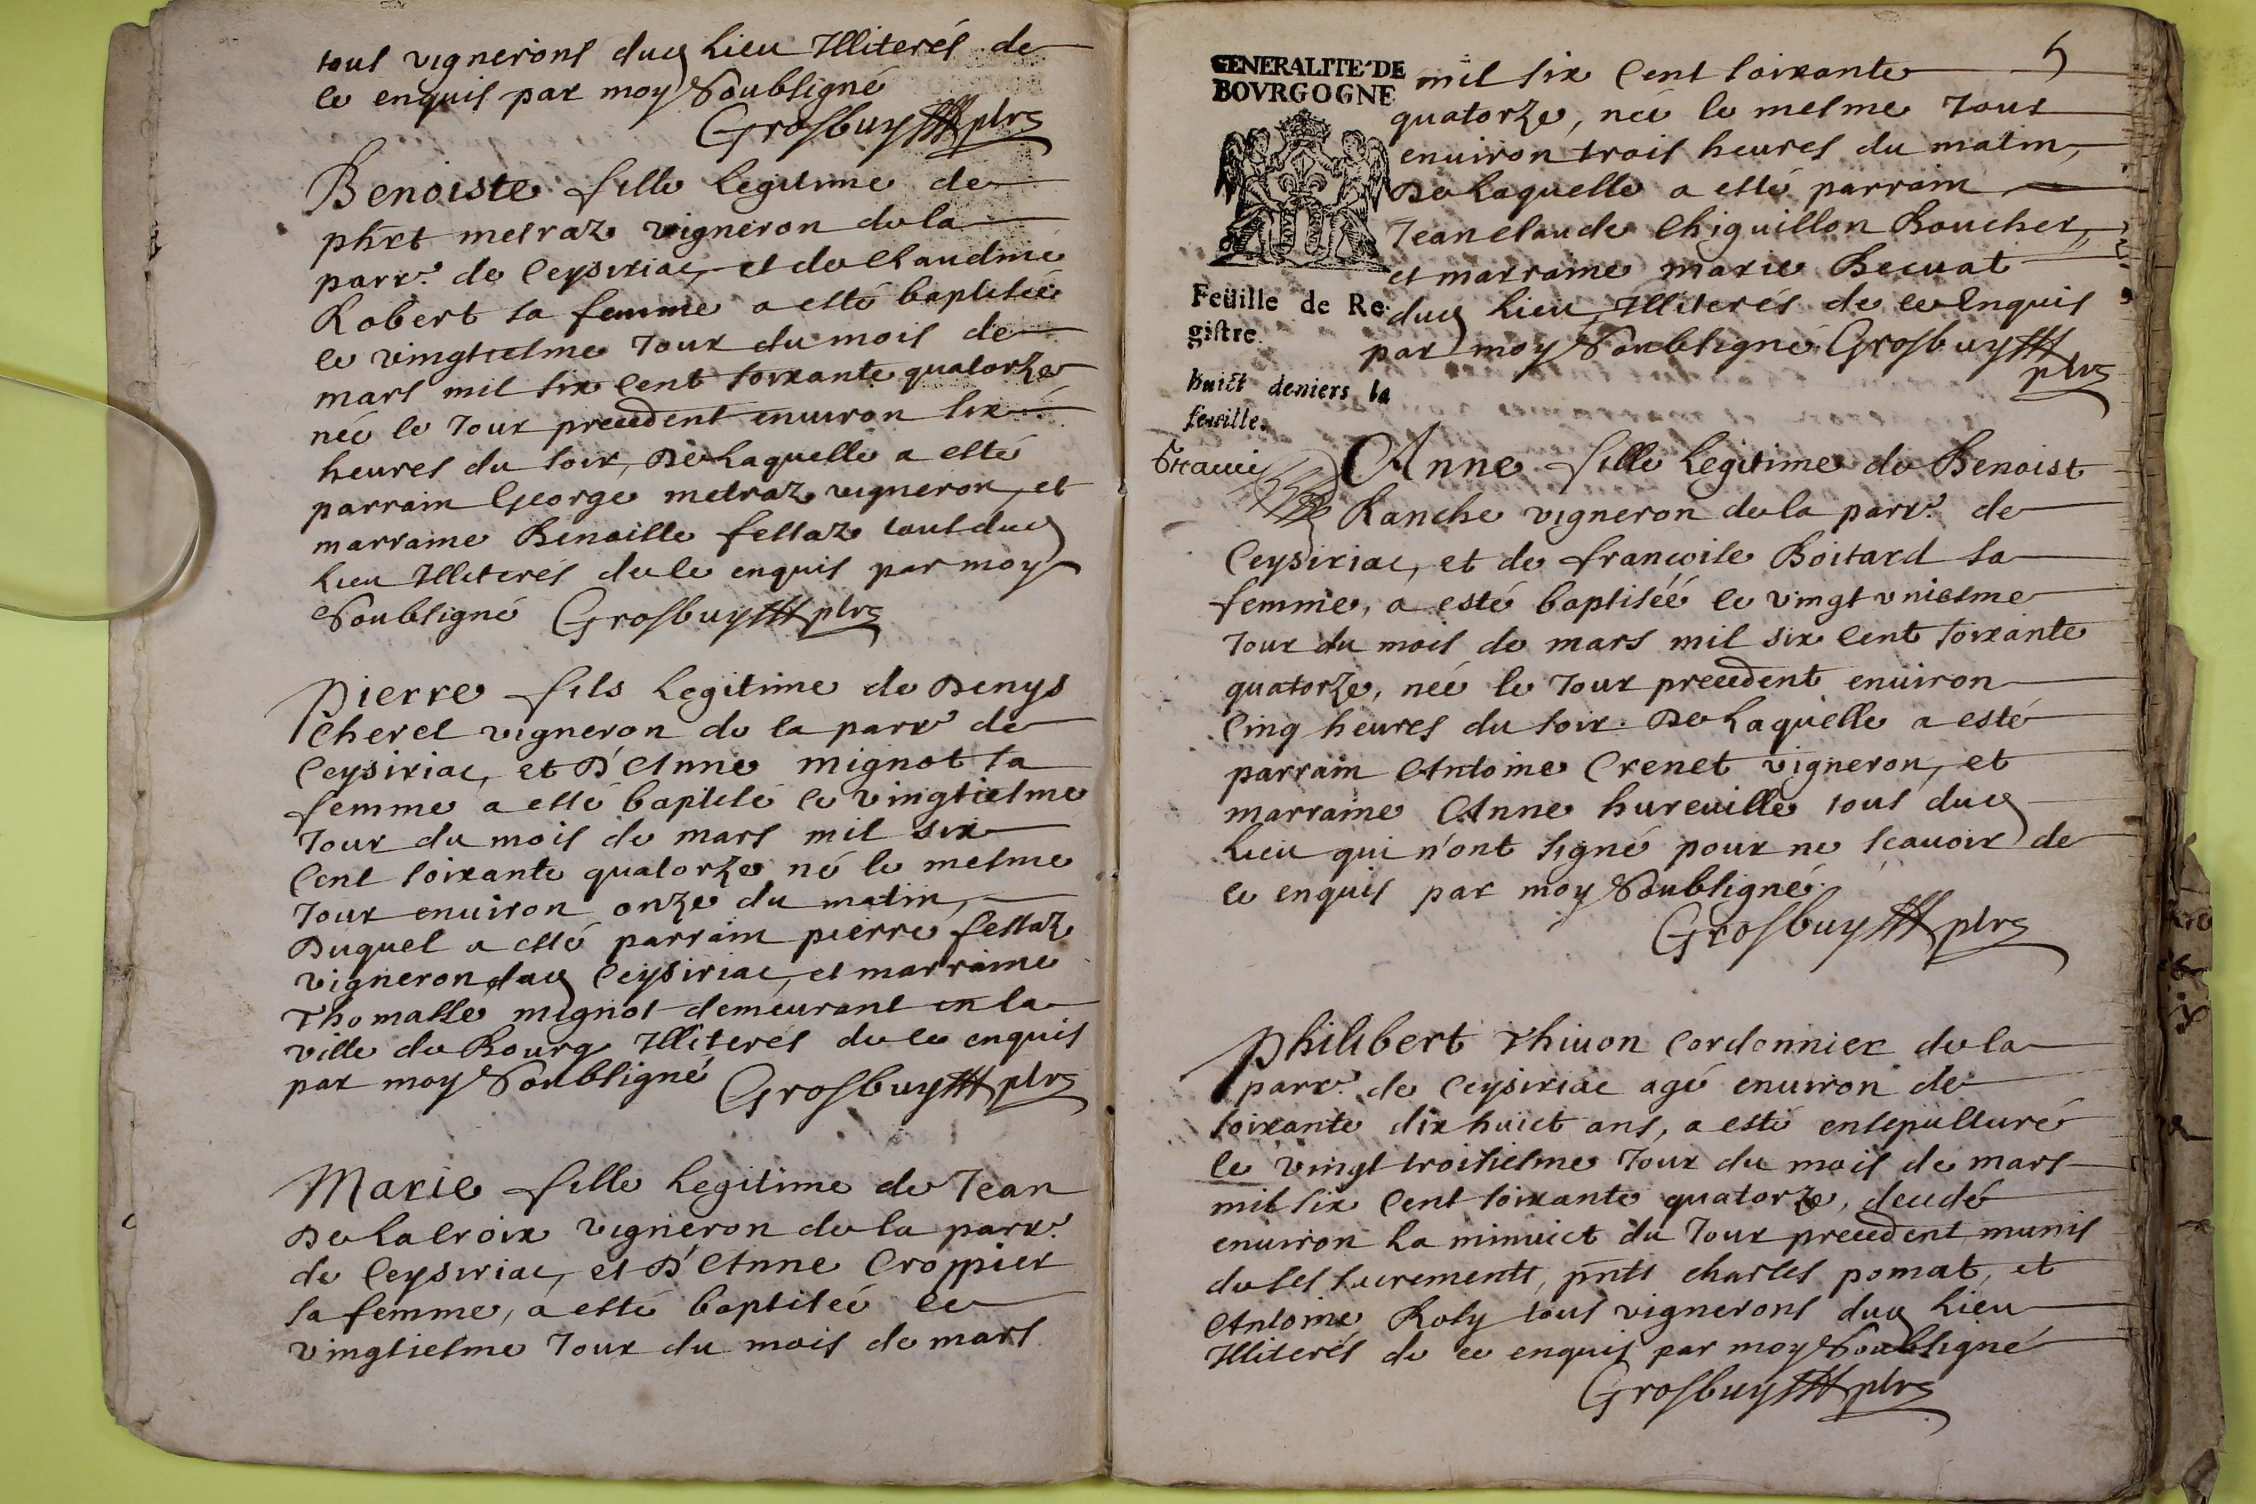 tous vignerons dud lieu Illiterés de
ce enquis par moy Soubsigné
Grosbuy ptre
Benoiste fille legitime de
phrt metraz vigneron de la
parr. de Ceysiriac, et de Claudine
Robert sa femme a esté baptisée
le vingtiesme Jour du mois de
mars mil six Cent soixante quatorze
née le Jour precedent enuiron six
heures du soir, De Laquelle a esté
parrain George metraz vigneron, et
marraine Benoiste festaz tous dud
Lieu Illiterés de ce enquis par moy
Soubsigné Grosbuy ptre
Pierre fils legitime de Denys
Cheret vigneron de la parr de
Ceysiriac, et D'Anne mignot sa
femme a esté baptisé le vingtiesme
Jour du mois de mars mil six
Cent soixante quatorze né le mesme
Jour enuiron onze du matin,
Duquel a esté parrain pierre festaz
vigneron dud Ceysiriac, et marraine
Thomasse mignot demeurant en la
ville de Bourg Illiterés de ce enquis
par moy Soubsigné Grosbuy ptre
Marie fille legitime de Jean
De La Croix vigneron de la parr.
de Ceysiriac, et D'Anne Croppier
sa femme, a esté baptisée le
vingtiesme Jour du mois de mars
5
GENERALITE DE
BOVRGOGNE
mil six Cent soixante
quatorze, née le mesme Jour
enuiron trois heures du matin,
De Laquelle a esté parrain
Jean claude Chiguillon Boucher,
et marraine marie Becuat
Feüille de Re-
gistre.
dud Lieu, Illiterés de ce Enquis
par moy Soubsigné Grosbuy
ptre
huict deniers la
feuille.
Anne fille legitime de Benoist
Ranche vigneron de la parr. de
Ceysiriac, et de francoise Boitard sa
femme, a esté baptiséé le vingt vniesme
Jour du mois de mars mil six Cent soixante
quatorze, née le Jour precedent enuiron
Cinq heures du soir. De Laquelle a esté
parrain Antoine Crenet vigneron, et
marraine Anne hureuille tous dud
Lieu qui n'ont signé pour ne scauoir de
ce enquis par moy Soubsigné
Grosbuy ptre
Philibert Thiuon Cordonnier de la
parr. de Ceysiriac agé enuiron de
soixante dix huict ans, a esté ensepulturé
le vingt troisiesme Jour du mois de mars
mil six Cent soixante quatorze, decedé
enuiron La minuict du Jour precedent munis
de ses sacrements, pnts charles pomat, et
Antoine Roly tous vignerons dud Lieu
Illiterés de ce enquis par moy Soubsigné
Grosbuy ptre